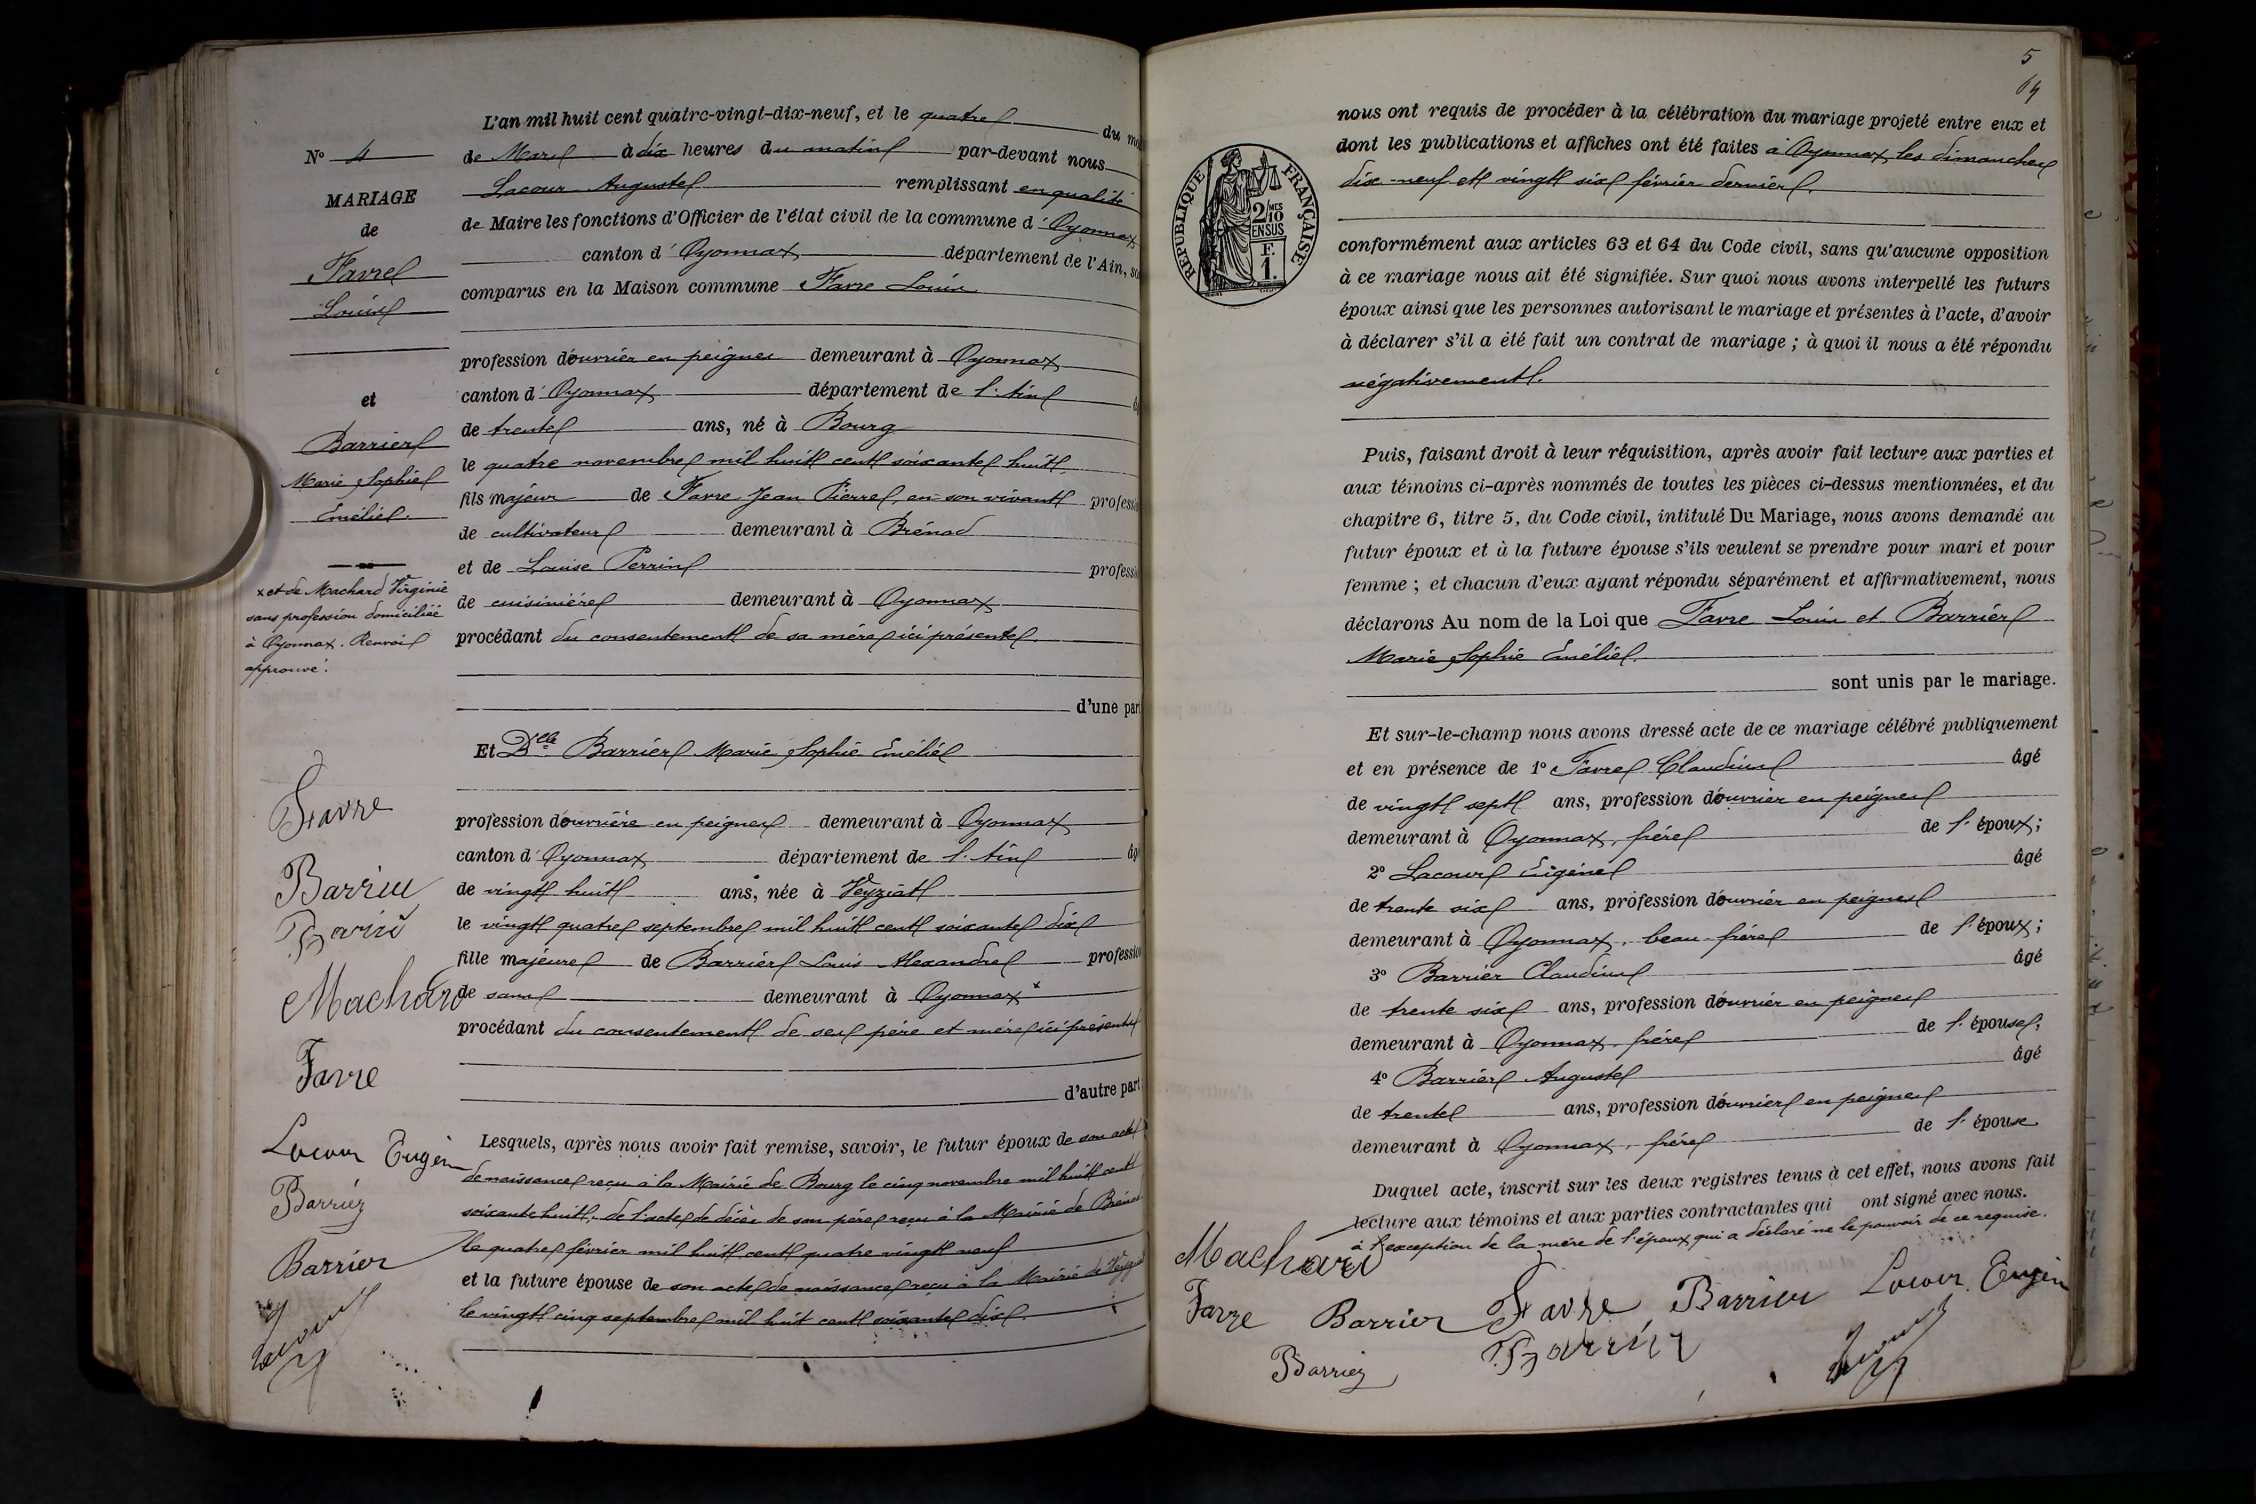 L'an mil huit cent quatre-vingt-dix-neuf, et le quatre du
N° 4
de Mars à dix heures du matin par-devant nous
MARIAGE
Lacour Auguste remplissant en qualité
de
de Maire les fonctions d'Officier de l'état civil de la commune d'Oyonnax
Favre
canton d'Oyonnax département de l'Ain,
Louis
comparus en la Maison commune Favre Louis
profession d'ouvrier en peignes demeurant à Oyonnax
et
canton d'Oyonnax département de l'Ain
Barrier
de trente ans, né à Bourg
Marie Sophie
le quatre novembre mil huit cent soixante huit
Emélie.
fils majeur de Favre Jean Pierre, en son vivant profession
de cultivateur demeurant à Brénod
et de Louise Perrin profession
x et de Machard Virginie
sans profession domiciliée
à Oyonnax. Renvoi
approuvé.
de cuisinière demeurant à Oyonnax
procédant du consentement de sa mère ici présente
d'une part
Et Delle Barrier Marie Sophie Emélie
profession d'ouvrière en peignes demeurant à Oyonnax
canton d'Oyonnax département de l'Ain âgé
de vingt huit ans, née à Veyziat
le vingt quatre septembre mil huit cent soixante dix
fille majeure de Barrier Louis Alexandre profession
de sans demeurant à Oyonnax x
procédant du consentement de ses père et mère ici présents
d'autre part
Lesquels, après nous avoir fait remise, savoir, le futur époux de son acte
de naissance reçu à la Mairie de Bourg le cinq novembre mil huit cent
soixante huit, de l'acte de décès de son père reçu à la Mairie de Brénod
le quatre février mil huit cent quatre vingt neuf
et la future épouse de son acte de naissance reçu à la Mairie de Veyziat
le vingt cinq septembre mil huit cent soixante dix.
Favre
Barrier
Barrier
Machard
Favre
Lacour Eugèn
Barrier
Barrier
Lacour
5
64
RÉPUBLIQUE FRANÇAISE
2/10 MES
EN SUS
F.
1.
nous ont requis de procéder à la célébration du mariage projeté entre eux et
dont les publications et affiches ont été faites à Oyonnax les dimanches
dix-neuf et vingt six février dernier
conformément aux articles 63 et 64 du Code civil, sans qu'aucune opposition
à ce mariage nous ait été signifiée. Sur quoi nous avons interpellé les futurs
époux ainsi que les personnes autorisant le mariage et présentes à l'acte, d'avoir
à déclarer s'il a été fait un contrat de mariage ; à quoi il nous a été répondu
négativement.
Puis, faisant droit à leur réquisition, après avoir fait lecture aux parties et
aux témoins ci-après nommés de toutes les pièces ci-dessus mentionnées, et du
chapitre 6, titre 5, du Code civil, intitulé Du Mariage, nous avons demandé au
futur époux et à la future épouse s'ils veulent se prendre pour mari et pour
femme ; et chacun d'eux ayant répondu séparément et affirmativement, nous
déclarons Au nom de la Loi que Favre Louis et Barrier
Marie Sophie Emélie
sont unis par le mariage.
Et sur-le-champ nous avons dressé acte de ce mariage célébré publiquement
et en présence de 1° Favre Claudius âgé
de vingt sept ans, profession d'ouvrier en peignes
demeurant à Oyonnax, frère de l'époux ;
2° Lacour Eugène âgé
de trente six ans, profession d'ouvrier en peignes
demeurant à Oyonnax, beau-frère de l'époux ;
3° Barrier Claudius âgé
de trente six ans, profession d'ouvrier en peignes
demeurant à Oyonnax, frère de l'épouse ;
4° Barrier Auguste âgé
de trente ans, profession d'ouvrier en peignes
demeurant à Oyonnax, frère de l'épouse
Duquel acte, inscrit sur les deux registres tenus à cet effet, nous avons fait
lecture aux témoins et aux parties contractantes qui ont signé avec nous.
à l'exception de la mère de l'époux qui a déclaré ne le pouvoir de ce requise.
Machard
Favre Barrier Favre Barrier Lacour Eugèn
Barrier Barrier Lacour